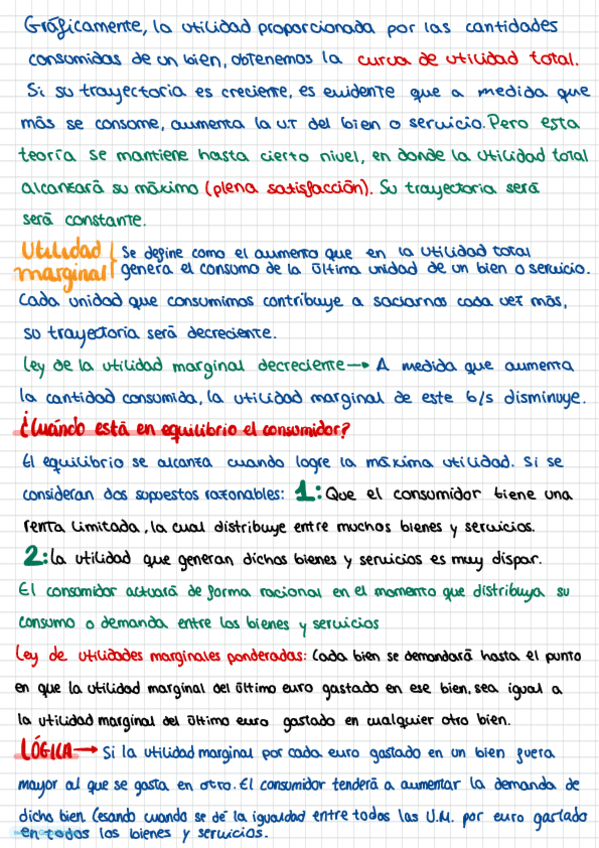 Gráficamente, la utilidad proporcionada por las cantidades
consumidas de un bien, obtenemos la curva de utilidad total.
Si su trayectoria es creciente, es evidente que a medida que
más se consome, aumenta la U.T del bien o servicio. Pero esta
teoría se mantiene hasta cierto nivel, en donde la utilidad total
alcanzará su máximo (plena satisfacción). Su trayectoria será
será constante.
Utilidad marginal
Se define como el aumento que en la utilidad total
genera el consumo de la última unidad de un bien o servicio.
Cada unidad que consumimos contribuye a saciarnos cada vez más,
su trayectoria será decreciente.
Ley de la utilidad marginal decreciente → A medida que aumenta
la cantidad consumida, la utilidad marginal de este b/s disminuye.
¿Cuándo está en equilibrio el consumidor?
El equilibrio se alcanza cuando logre la máxima utilidad. Si se
consideran dos supuestos razonables: 1: Que el consumidor tiene una
renta limitada, la cual distribuye entre muchos bienes y servicios.
2: La utilidad que generan dichos bienes y servicios es muy dispar.
El consumidor actuará de forma racional en el momento que distribuya su
consumo o demanda entre los bienes y servicios
Ley de utilidades marginales ponderadas: Cada bien se demandará hasta el punto
en que la utilidad marginal del último euro gastado en ese bien, sea igual a
la utilidad marginal del último euro gastado en cualquier otro bien.
LÓGICA → Si la utilidad marginal por cada euro gastado en un bien fuera
mayor al que se gasta en otro. El consumidor tenderá a aumentar la demanda de
dicho bien (esando cuando se dé la igualdad entre todos las U.M. por euro gastado
en todos los bienes y servicios.